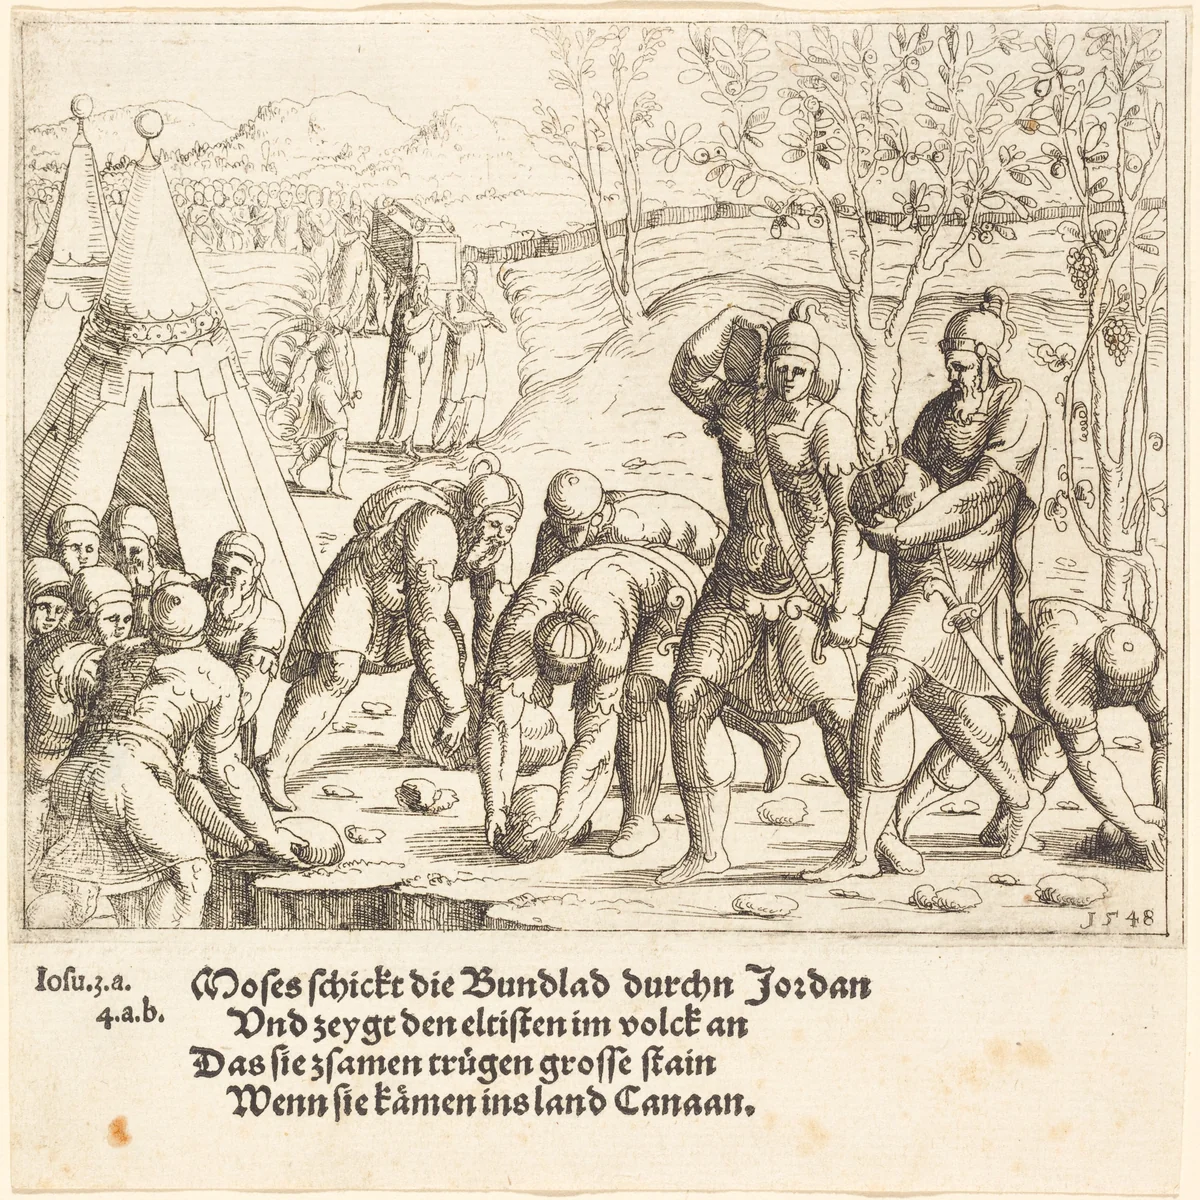 1548
Iosu.3.a.
4.a.b.
Moses schickt die Bundlad durchn Jordan
Vnd zeygt den eltisten im volck an
Das sie zsamen trůgen grosse stain
Wenn sie kåmen ins land Canaan.